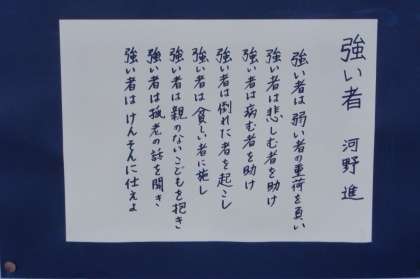 強い者 河野進
強い者は弱い者の重荷を負い
強い者は悲しむ者を助け
強い者は病む者を助け
強い者は倒れた者を起こし
強い者は貧しい者に施し
強い者は親のないこどもを抱き
強い者は孤老の話を聞き
強い者はけんそんに仕えよ